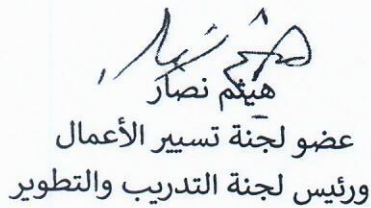 هيثم نصار
عضو لجنة تسيير الأعمال
ورئيس لجنة التدريب والتطوير